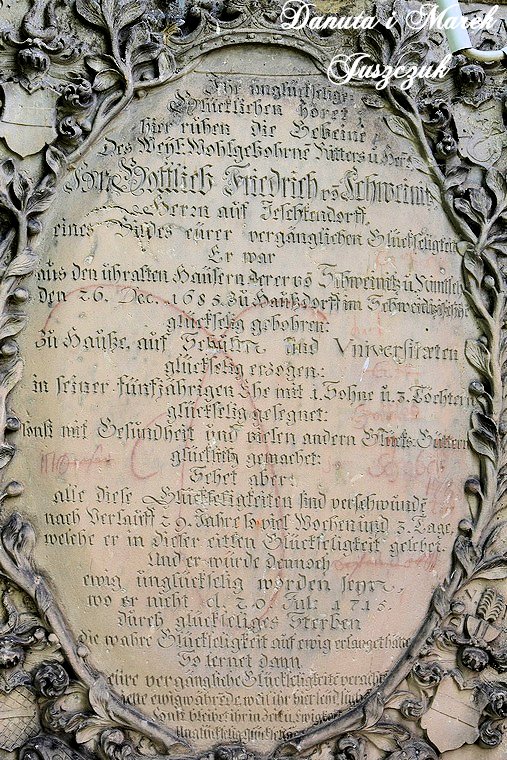 Danuta i Marek
Juszczuk
Ihr unglückselige
Glücklichen höret!
hier ruhen die Gebeine
Des Wohlgebohrne Ritters u. Herr
Gottlieb Friedrich vō Schweinitz
Herrn auf Jeschkendorff.
eines Bildes eurer vergänglichen Glückseligkeit
Er war
aus den uhralten Häusern derer vō Schweinitz u.
den 26. Dec. 1685. zu Haußdorff im Schweidnitzische
glückselig gebohren:
Zu Hauße, auf Schulen und Vniversitæten
glückselig erzogen:
in seiner fünfjährigen Ehe mit 1. Sohne u. 3. Töchtern
glückselig gesegnet:
sonst mit Gesundheit und vielen andern Glücks-Güttern
glückselig gemachet:
Sehet aber!
alle diese Glückseligkeiten sind verschwundē
nach Verlauff 29. Jahre so viel Wochen und 3. Tage,
welche er in dieser eitlen Glückseligkeit gelebet.
Und er würde dennoch
ewig unglückselig worden seyn,
wo er nicht d. 20. Jul: 1715.
durch glückseliges Sterben
die wahre Glückseligkeit auf ewig erlanget hätte
So lernet dann
eure vergängliche Glückseligkeit verachtē
sonst bleibet ihr
Unglückselig